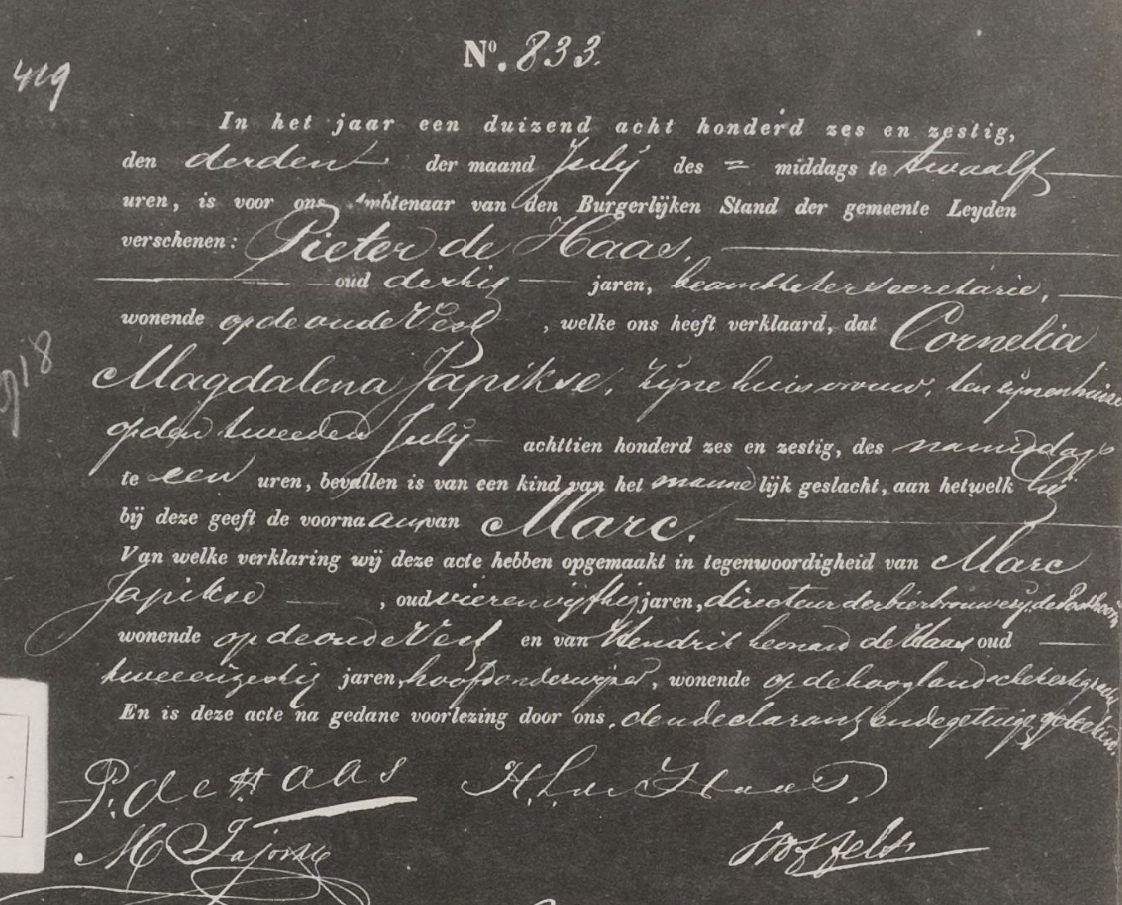 Nº. 833.
419
In het jaar een duizend acht honderd zes en zestig,
den derden der maand July des = middags te twaalf
uren, is voor ons Ambtenaar van den Burgerlijken Stand der gemeente Leyden
verschenen: Pieter de Haas,
oud dertig jaren, beambte ter secretarie,
wonende op de oude Vest, welke ons heeft verklaard, dat Cornelia
918
Magdalena Japikse, zijne huisvrouw, ten zijnen huize
op den tweeden July achttien honderd zes en zestig, des namiddags
te een uren, bevallen is van een kind van het mannelijk geslacht, aan hetwelk hij
bij deze geeft de voornaam van Marc.
Van welke verklaring wij deze acte hebben opgemaakt in tegenwoordigheid van Marc
Japikse, oud vierenvijftig jaren, directeur der bierbrouwery de Posthoorn
wonende op de oude Vest en van Hendrik Leonard de Haas oud
tweeenzestig jaren, hoofdonderwijzer, wonende op de hooglandsche kerkgracht
En is deze acte na gedane voorlezing door ons, den declarant en de getuigen geteekend.
P. de Haas H. L. de Haas,
M Japikse Stoffels